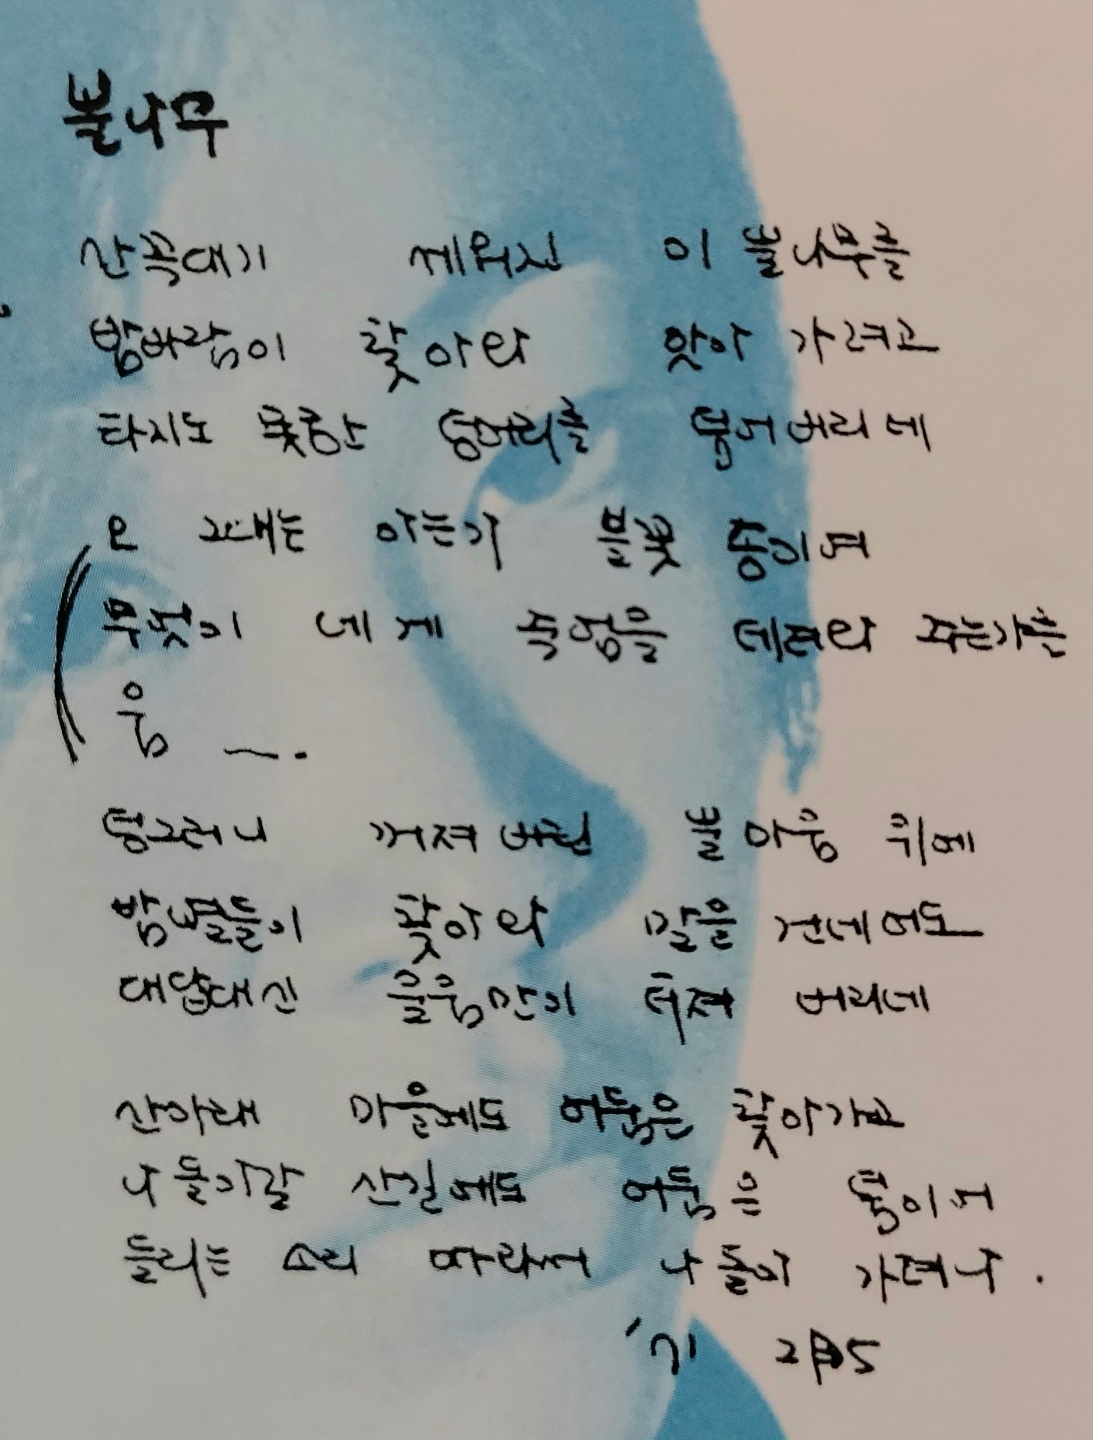 불나무
산꼭대기 세워진 이 불나무를
밤바람이 찾아와 앗아 가려고
타지도 못한 덩어리를 덮어버리네
오 그대는 아는가 불꽃 송이여
무엇이 내게 죽엄을 데려와 주는가를
음 ㅡ.
덩그러니 꺼져버린 불 마음 위에
밤 별들이 찾아와 말을 건네어도
대답대신 울음만이 터져 버리네
산아래 마을에도 어둠은 찾아가고
나 돌아갈 산길에도 어둠은 덮이어
들리는 소리 따라서 나 돌아 가려나.